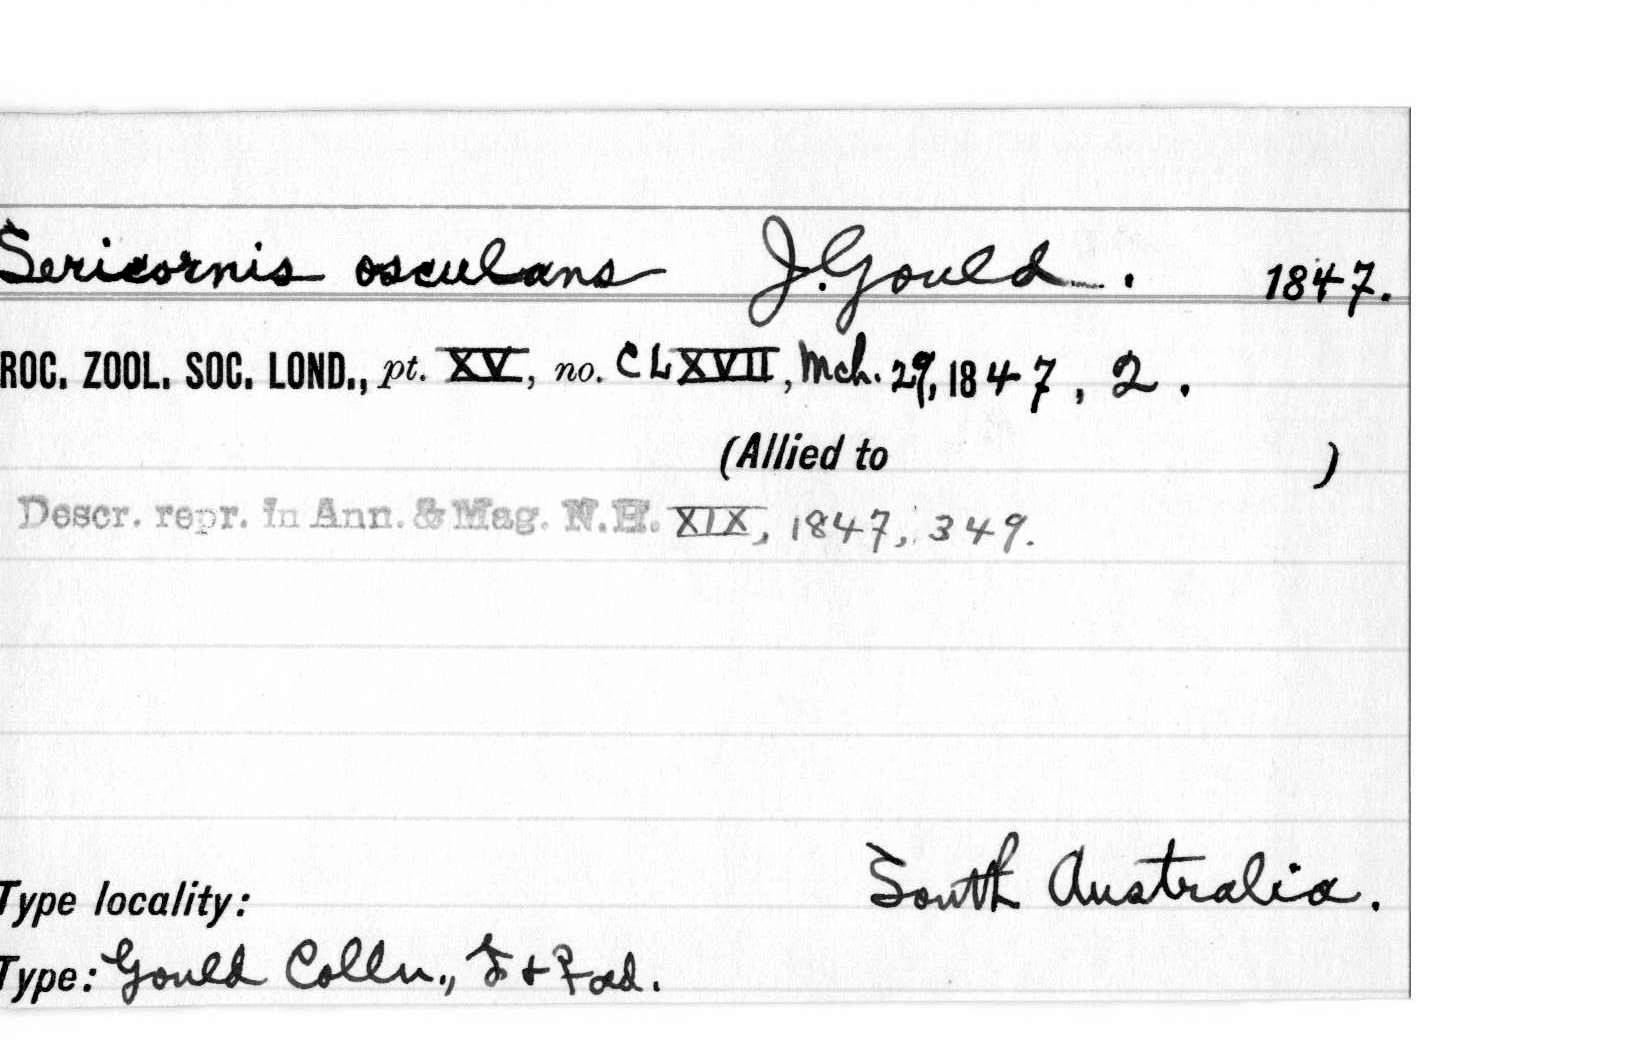 Sericornis osculans J. Gould. 1847.
ROC. ZOOL. SOC. LOND., pt. XV, no. CLXVII, Mch. 29, 1847, 2.
(Allied to )
Descr. repr. in Ann. & Mag. N.H. XIX, 1847, 349.
Type locality: South Australia.
Type: Gould Colln., ♂ + ♀ ad.